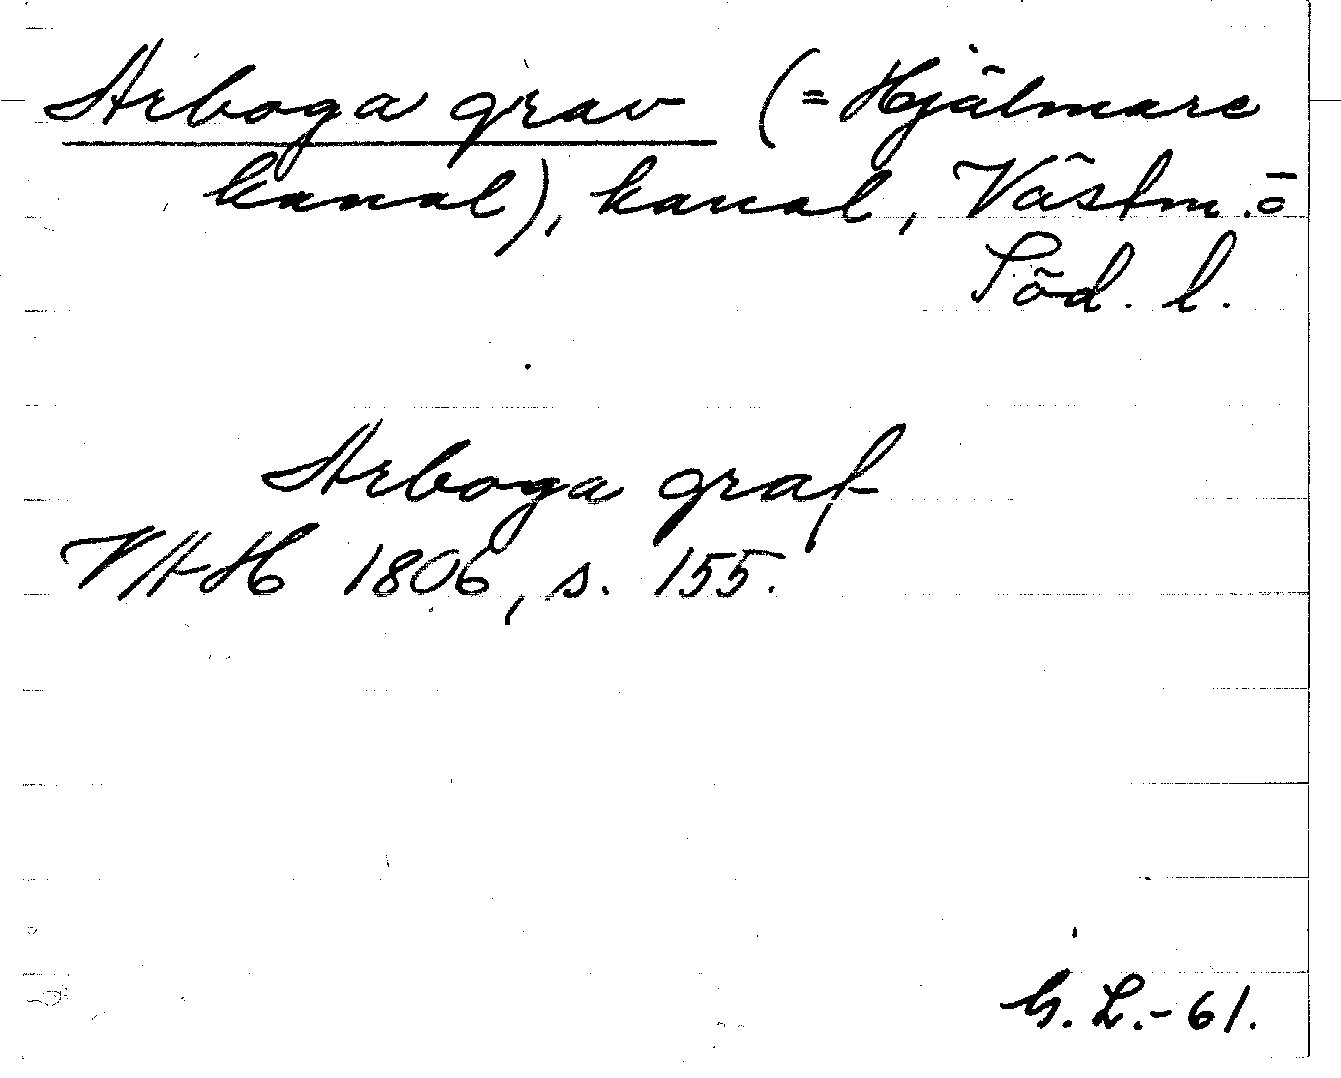 Arboga grav (= Hjälmare
kanal), kanal, Västm. o
Söd. l.
Arboga graf
VAH 1806, s. 155.
G. L. - 61.